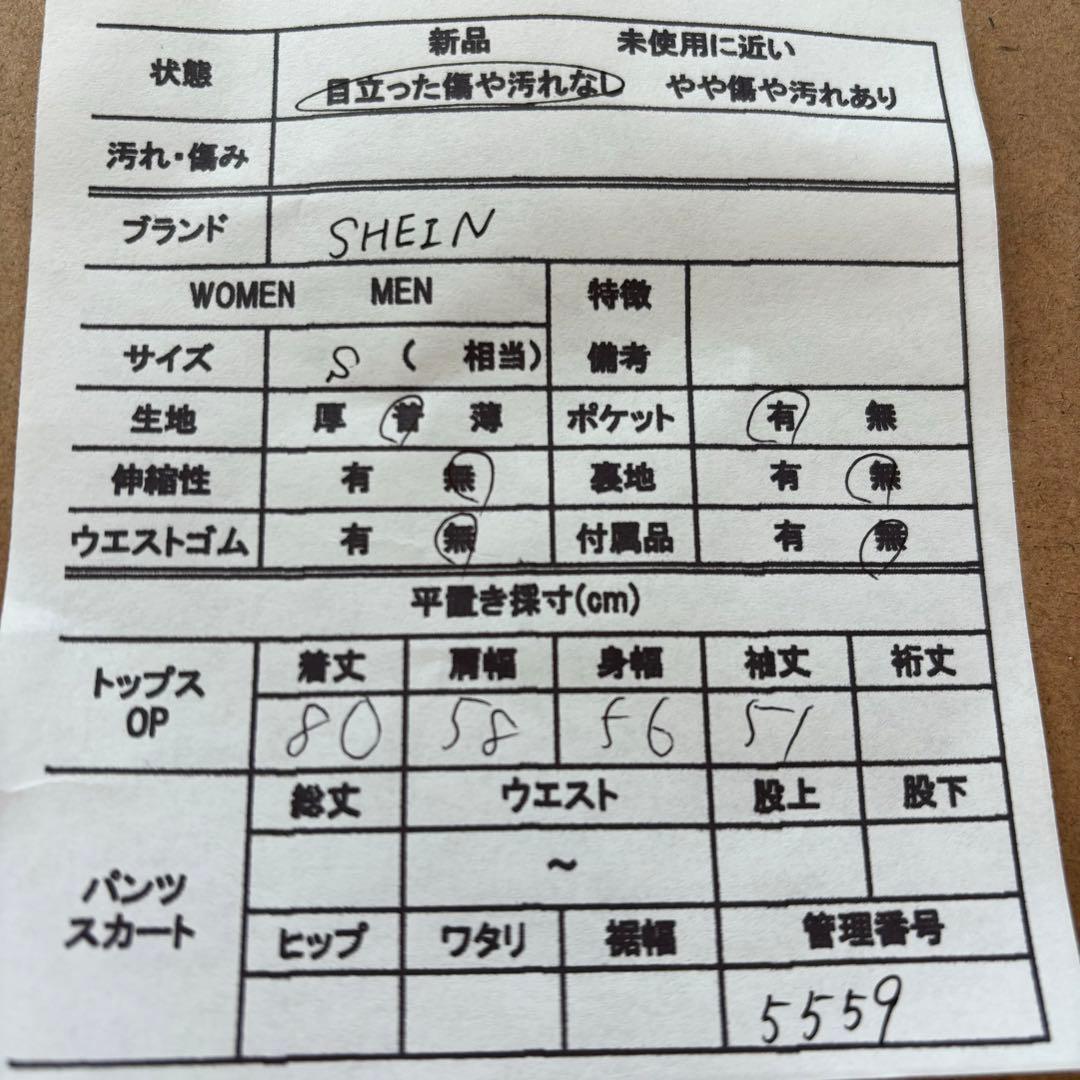 状態 新品 未使用に近い
目立った傷や汚れなし やや傷や汚れあり
汚れ・傷み
ブランド SHEIN
WOMEN MEN 特徴
サイズ S ( 相当) 備考
生地 厚 普 薄 ポケット 有 無
伸縮性 有 無 裏地 有 無
ウエストゴム 有 無 付属品 有 無
平置き採寸(cm)
トップス OP 着丈 肩幅 身幅 袖丈 裄丈
80 58 56 51
パンツ スカート 総丈 ウエスト 股上 股下
～
ヒップ ワタリ 裾幅 管理番号
5559